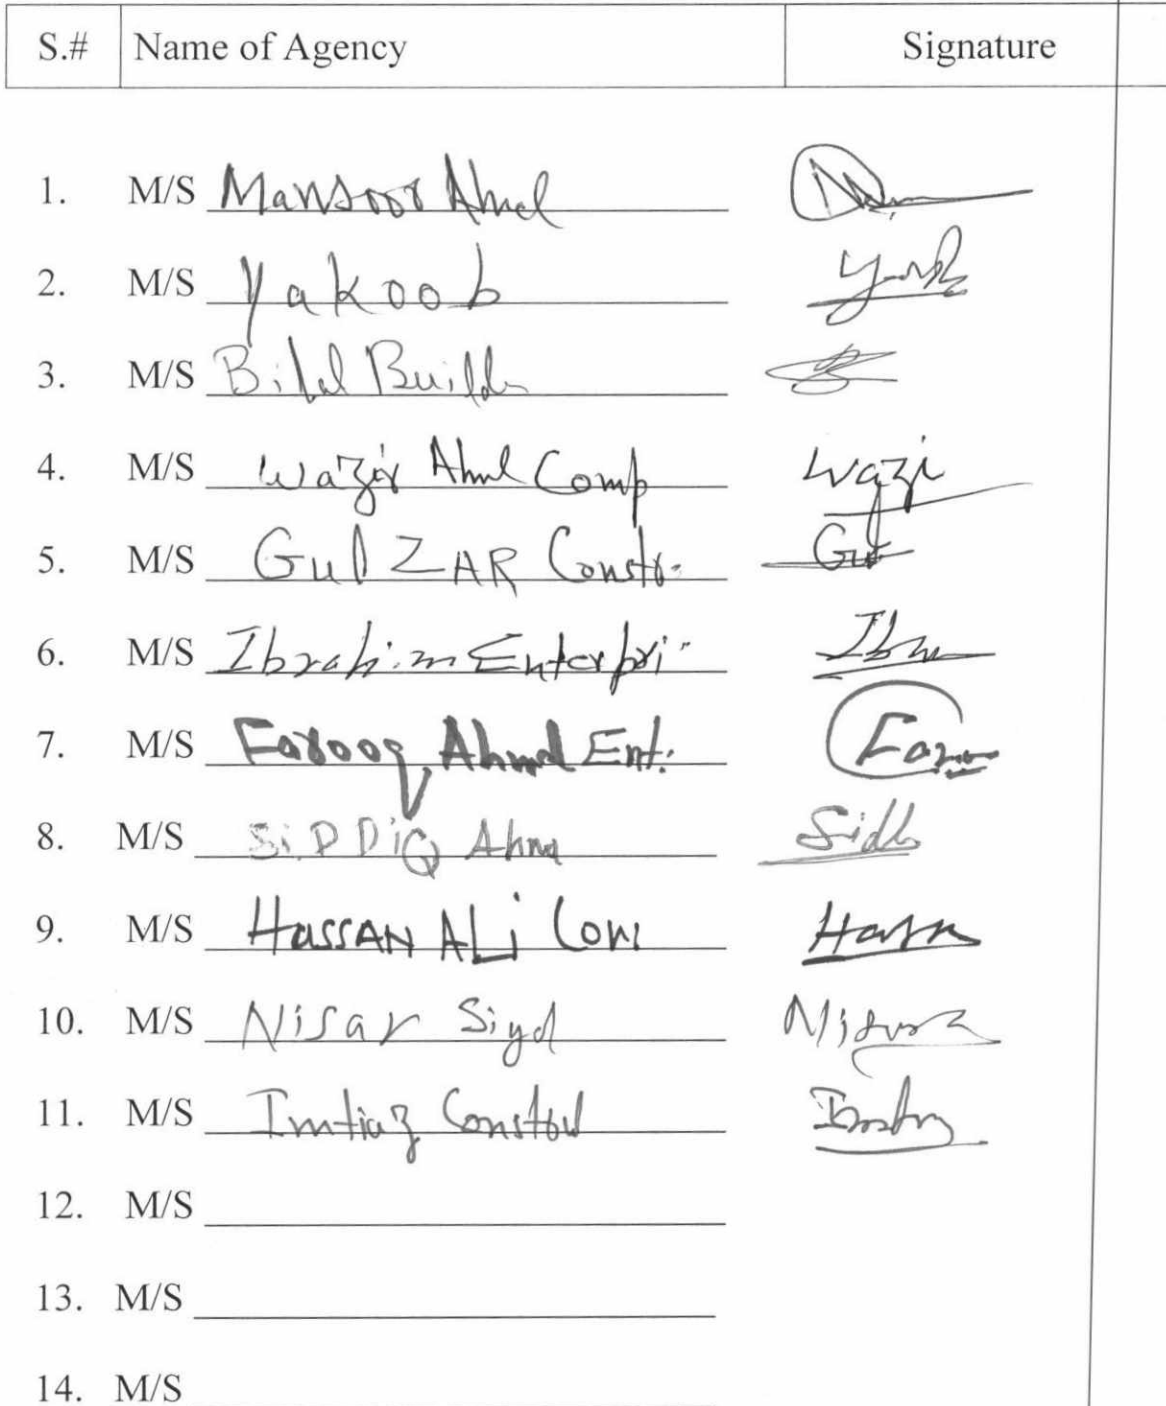 S.# Name of Agency Signature
1. M/S Mansoor Ahmd
2. M/S Yakoob
3. M/S Bilal Build
4. M/S Wazir Ahmd Comp Wazi
5. M/S Gul ZAR Constr. Gul
6. M/S Ibrahim Enterpri Ibr
7. M/S Farooq Ahmd Ent. Far
8. M/S SiDDiQ Ahm Sidh
9. M/S HASSAN ALi Con Hasn
10. M/S Nisar Siyd
11. M/S Imtiaz
12. M/S
13. M/S
14. M/S